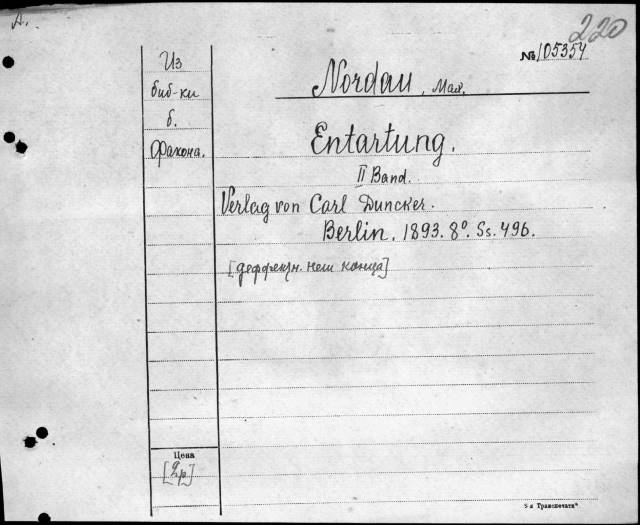 А.
220
№ 105354
Из
биб-ки
б.
Фахона.
Nordau, Max.
Entartung.
II Band.
Verlag von Carl Duncker.
Berlin. 1893. 8°. Ss. 496.
[деффектн. нет конца]
Цена
[2р]
5-я Транспечати"